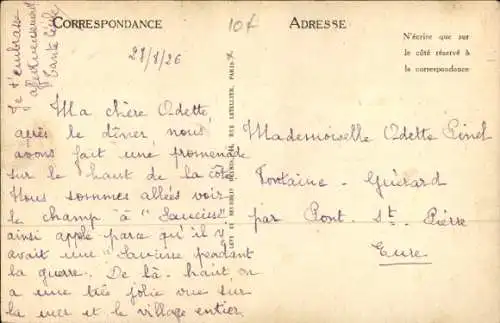 CORRESPONDANCE
10f
28/8/26
Je t'embrasse
affectueusement
tante
Ma chère Odette
après le dîner nous
avons fait une promenade
sur le haut de la côte
Nous sommes allées voir
le champ à "Saucisse"
ainsi appelé parce qu'il y
avait une "Saucisse pendant
la guerre. De là-haut on
a une très jolie vue sur
la mer et le village entier.
ADRESSE
N'écrire que sur
le côté réservé à
la correspondance
Mademoiselle Odette Pinel
Fontaine - Guérard
par Pont. St. Pierre
Eure